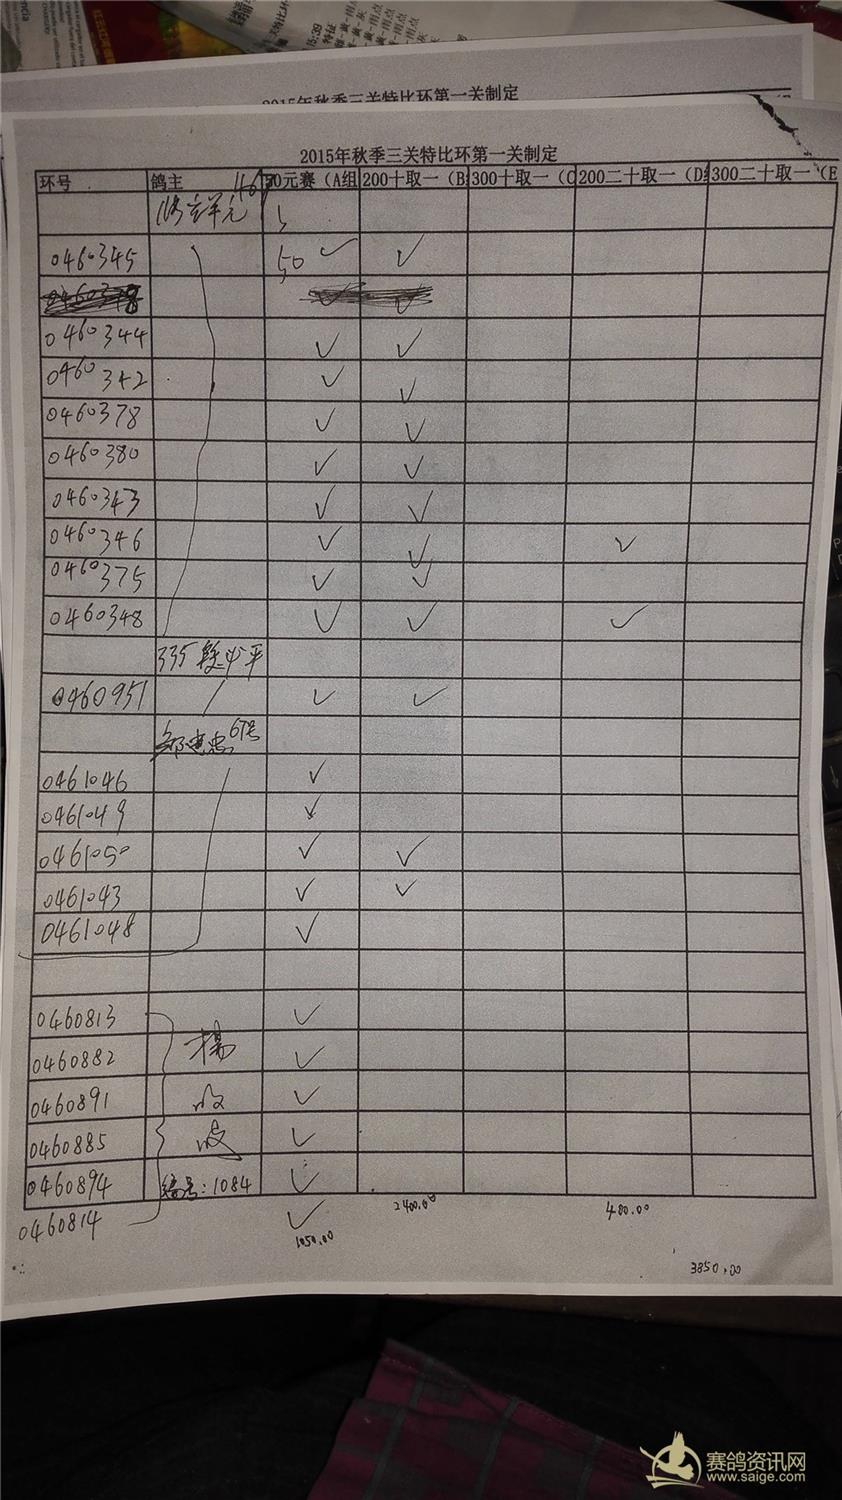 2015年秋季三关特比环第一关制定
2015年秋季三关特比环第一关制定
环号 鸽主 50元赛（A组 200十取一（B 300十取一（C 200二十取一（D组 300二十取一（E
0460345 50 ✓ ✓
0460344 ✓ ✓
0460342 ✓ ✓
0460378 ✓ ✓
0460380 ✓ ✓
0460343 ✓ ✓
0460346 ✓ ✓ ✓
0460375 ✓ ✓
0460348 ✓ ✓ ✓
335 平
0460951 ✓ ✓
邹建忠 67号
0461046 ✓
0461049 ✓
0461050 ✓ ✓
0461043 ✓ ✓
0461048 ✓
0460813 ✓
0460882 杨 ✓
0460891 ✓
0460885 波 ✓
0460894 编号:1084 ✓
0460814 ✓
1050.00 2400.00 480.00
3850.00
赛鸽资讯网
www.saige.com